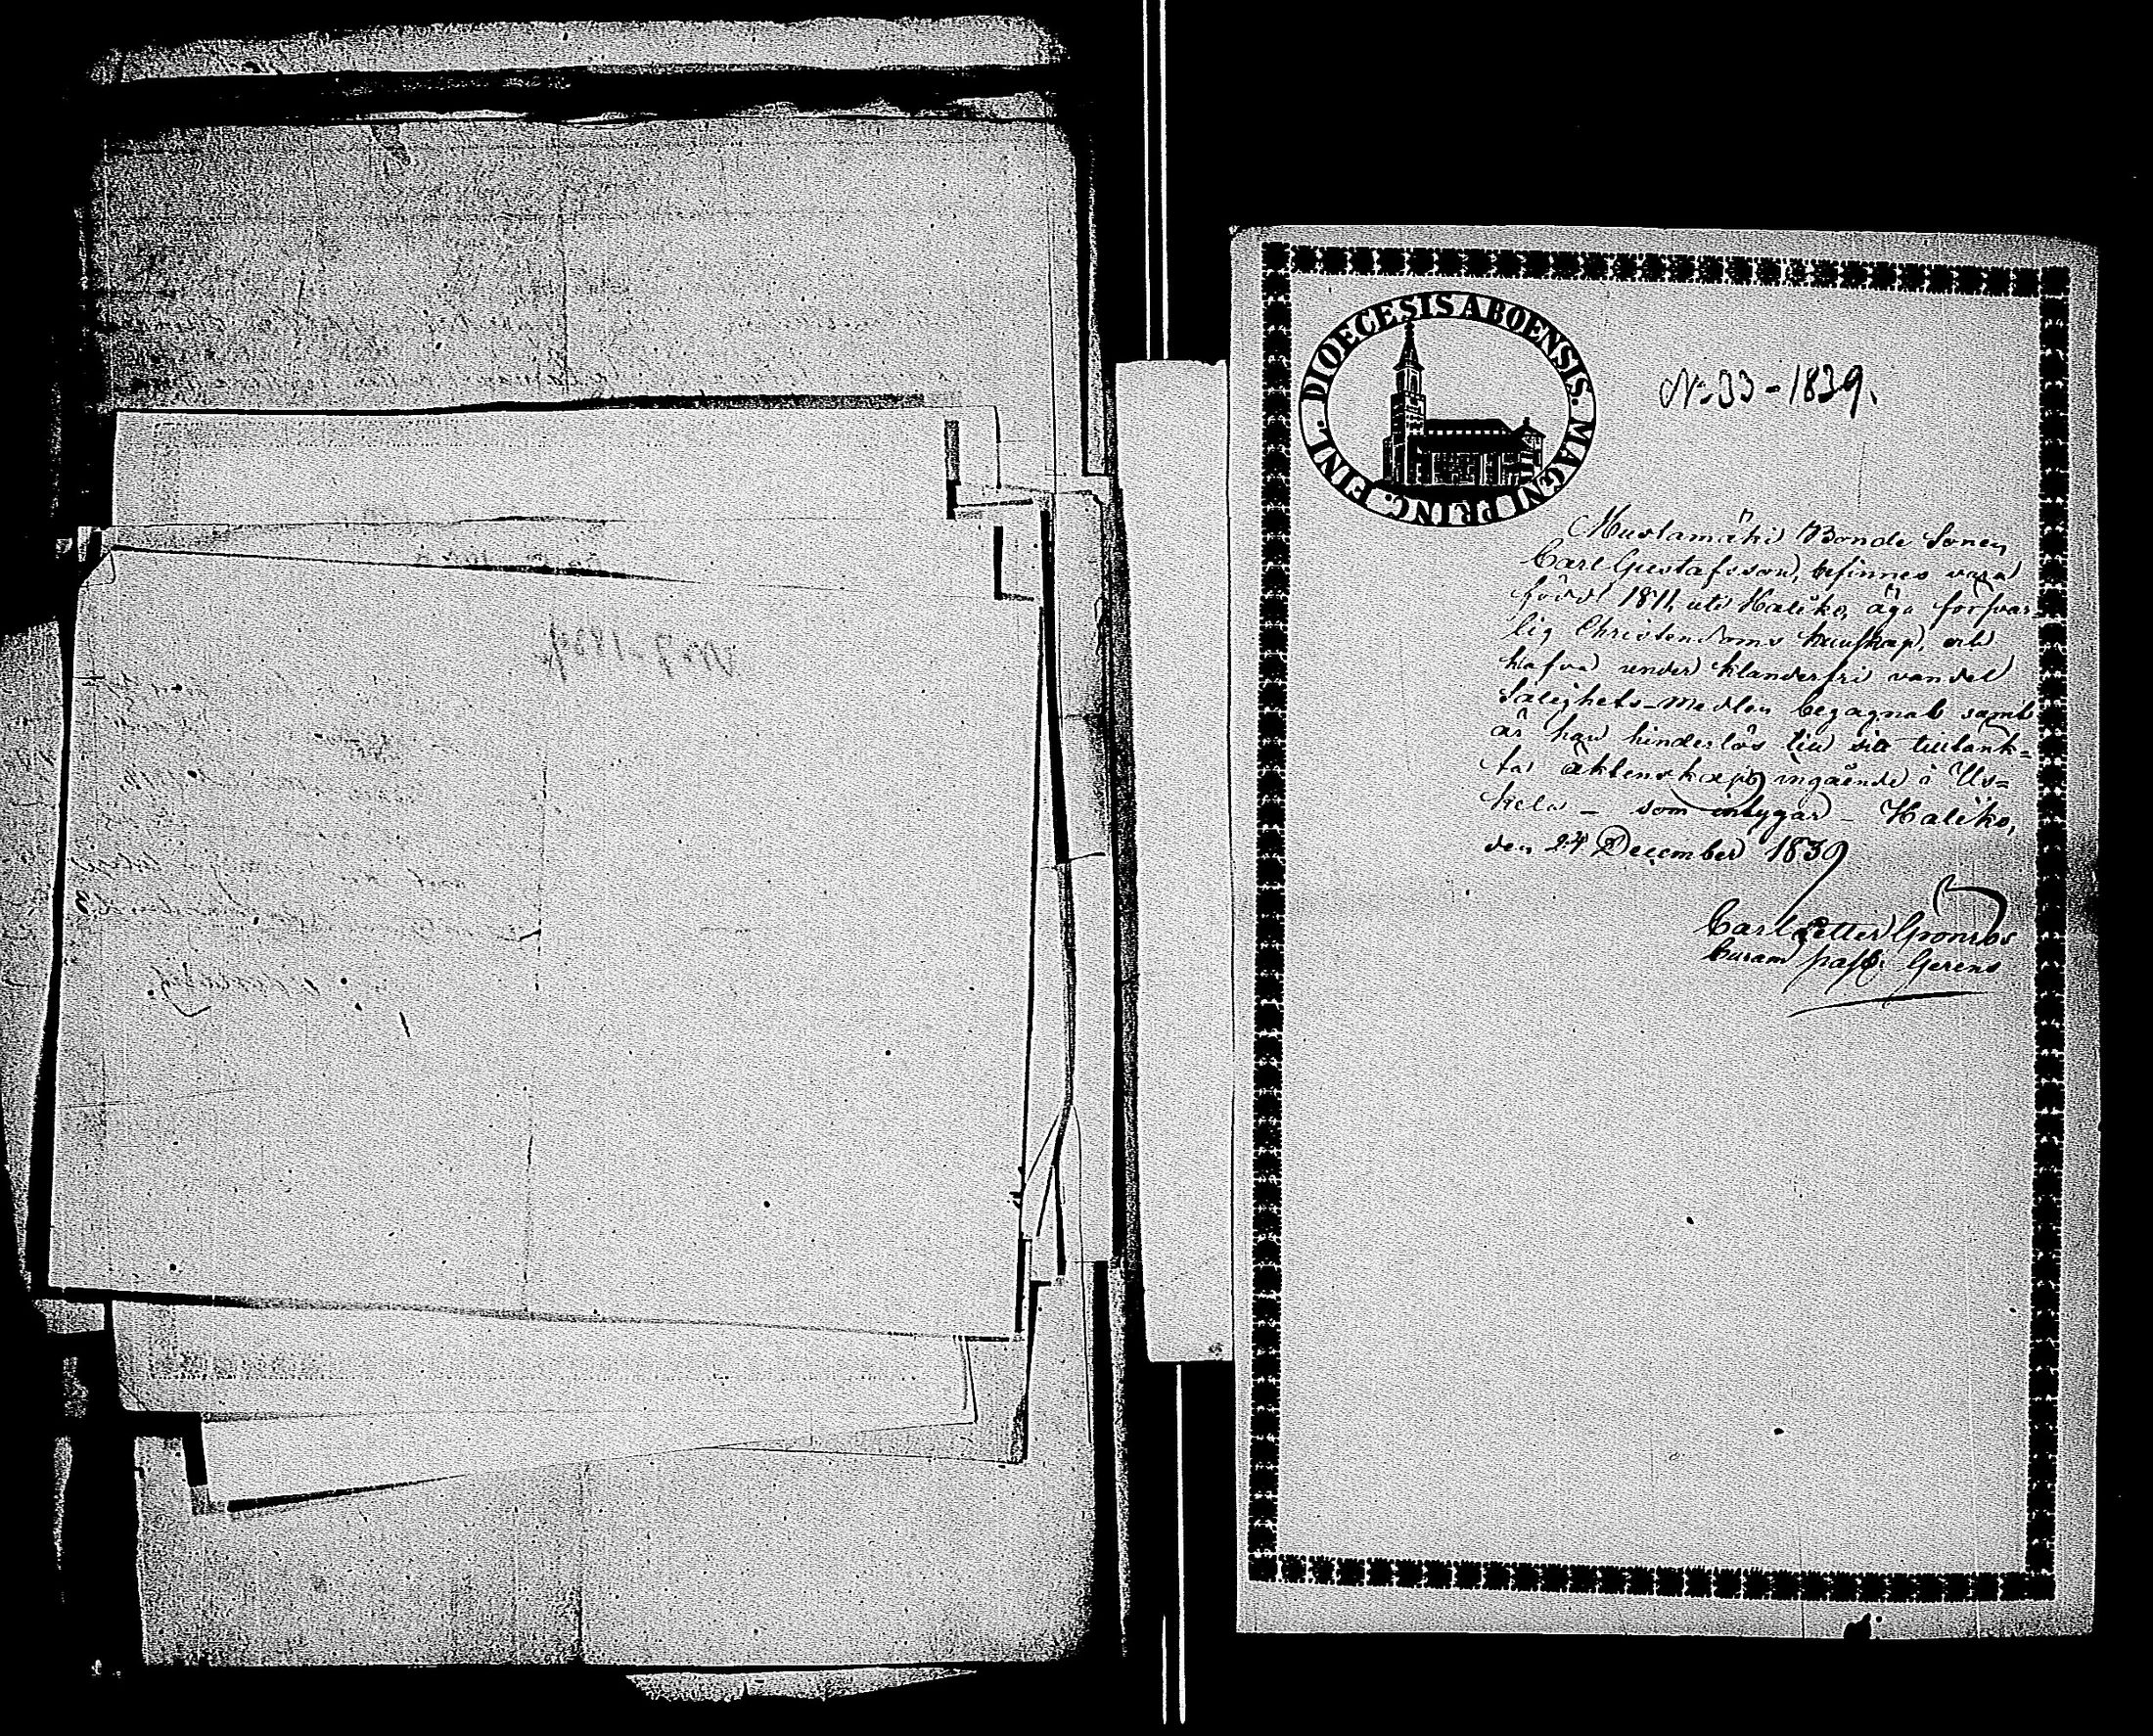 DIOECESIS ABOENSIS. MAGNI PRINC. FINL.
N:o 33 - 1839.
Mustamäki Bonde Sonen
Carl Gustafsson, befinnes vara
född 1811, uti Haliko, äga försvar-
lig Christendoms kunskap, och
hafva under klanderfri vandel
Salighets-medlen begagnat samt
är han hinderlös till sitt tilltänk-
ta äktenskaps ingående i Us-
kela - som intygar - Haliko,
den 24 December 1839
Carl Petter Grönroos
Curam past. Gerens